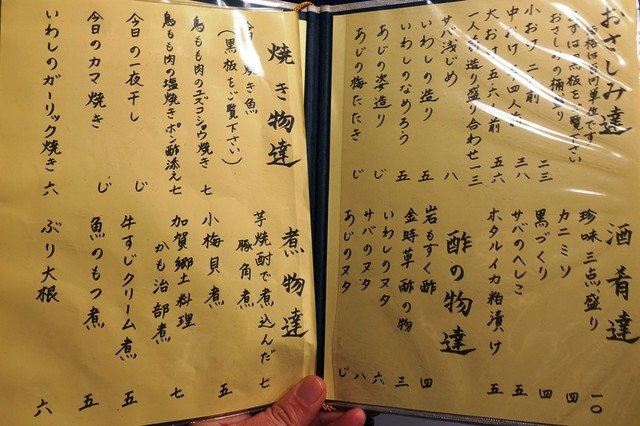 おさしみ達
価格は百円単位です
まずは黒板をご覧下さい
おさしみの桶盛り
小おけ 二人前 二三
中おけ 三、四人前 三八
大おけ 五、六人前 五六
一人前造り盛り合わせ 一三
サバ浅じめ 八
いわしの造り 五
いわしのなめろう 五
あじの姿造り じ
あじの梅たたき じ
酒肴達
珍味三点盛り 一〇
カニミソ 四
黒づくり 四
サバのへしこ 五
ホタルイカ粕漬け 五
酢の物達
岩もずく酢 四
金時草酢の物 三
いわしのヌタ 六
サバのヌタ 八
あじのヌタ じ
焼き物達
今日の焼き魚
(黒板をご覧下さい)
鳥もも肉のユズコショウ焼き 七
鳥もも肉の塩焼きポン酢添え 七
今日の一夜干し じ
今日のカマ焼き じ
いわしのガーリック焼き 六
煮物達
芋焼酎で煮込んだ
豚角煮 七
小梅貝煮 五
加賀郷土料理
かも治部煮 七
牛すじクリーム煮 五
魚のもつ煮 五
ぶり大根 六